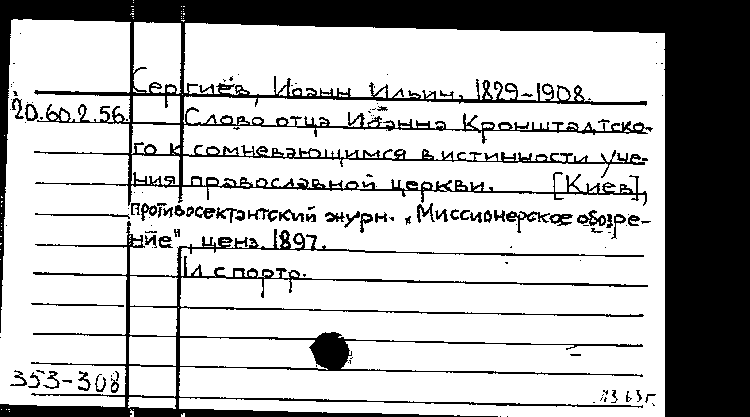 Сергиёв, Иоанн Ильич, 1829-1908.
20.60.2.56. Слово отца Иоанна Кронштадтско-
го к сомневающимся в истинности уче-
ния православной церкви. [Киев],
противосектантский журн. „Миссионерское обозре-
ние", ценз. 1897.
1л с портр.
353-308